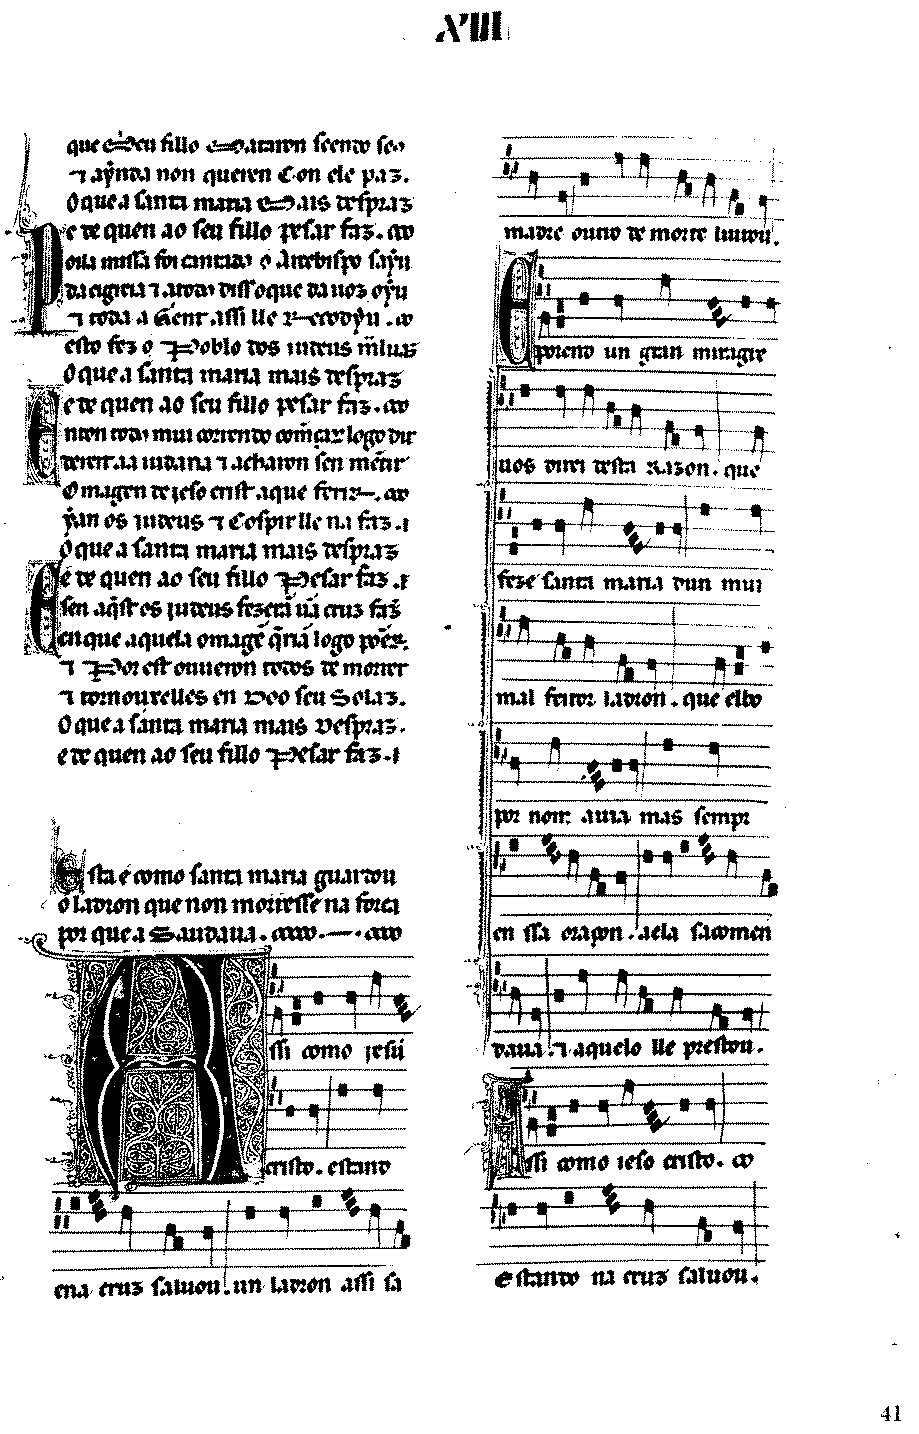 XIII
que e Meu fillo e mataron seendo seo
⁊ aynda non queren Con ele paz.
O que a santa maria e Mais despraz
e de quen ao seu fillo pesar faz. 
Poila missa foi cantada o Arcebispo sayu
da eigreia ⁊ a todos diss o que da uoz oyu
⁊ toda a Gent assi lle Recodyu.
esto fez o Poblo dos iudeus
O que a santa maria mais despraz
e de quen ao seu fillo pesar faz.
Enton todos mui correndo começar logo dir
dereit aa iudaria ⁊ acharon sen mentir
Omagen de ieso crist a que ferir
yan os iudeus ⁊ Cospir lle na faz.
O que a santa maria mais despraz
e de quen ao seu fillo Pesar faz.
E sen aqst os iudeus fezerã ũa cruz faz
en que aquela omagẽ q̃riã logo põer.
⁊ Por est ouueron todos de morrer
⁊ tornouxelles en Doo seu Solaz.
O que a santa maria mais Despraz.
e de quen ao seu fillo Pesar faz.
Esta é como santa maria guardou
o ladron que non morresse na forca
por que a Saudaua.
Assi como jesú
cristo. estand
ena cruz saluou. un ladron assi sa
madre outro de morte liurou.
E porend un gran miragre
uos direi desta Razon. que
feze santa maria dun mui
mal feitor ladron. que elbo
por nom auia mas sempr
en ssa oraçon. aela sacomen
daua. ⁊ aquelo lle prestou.
Assi como ieso cristo.
estando na cruz saluou.
41